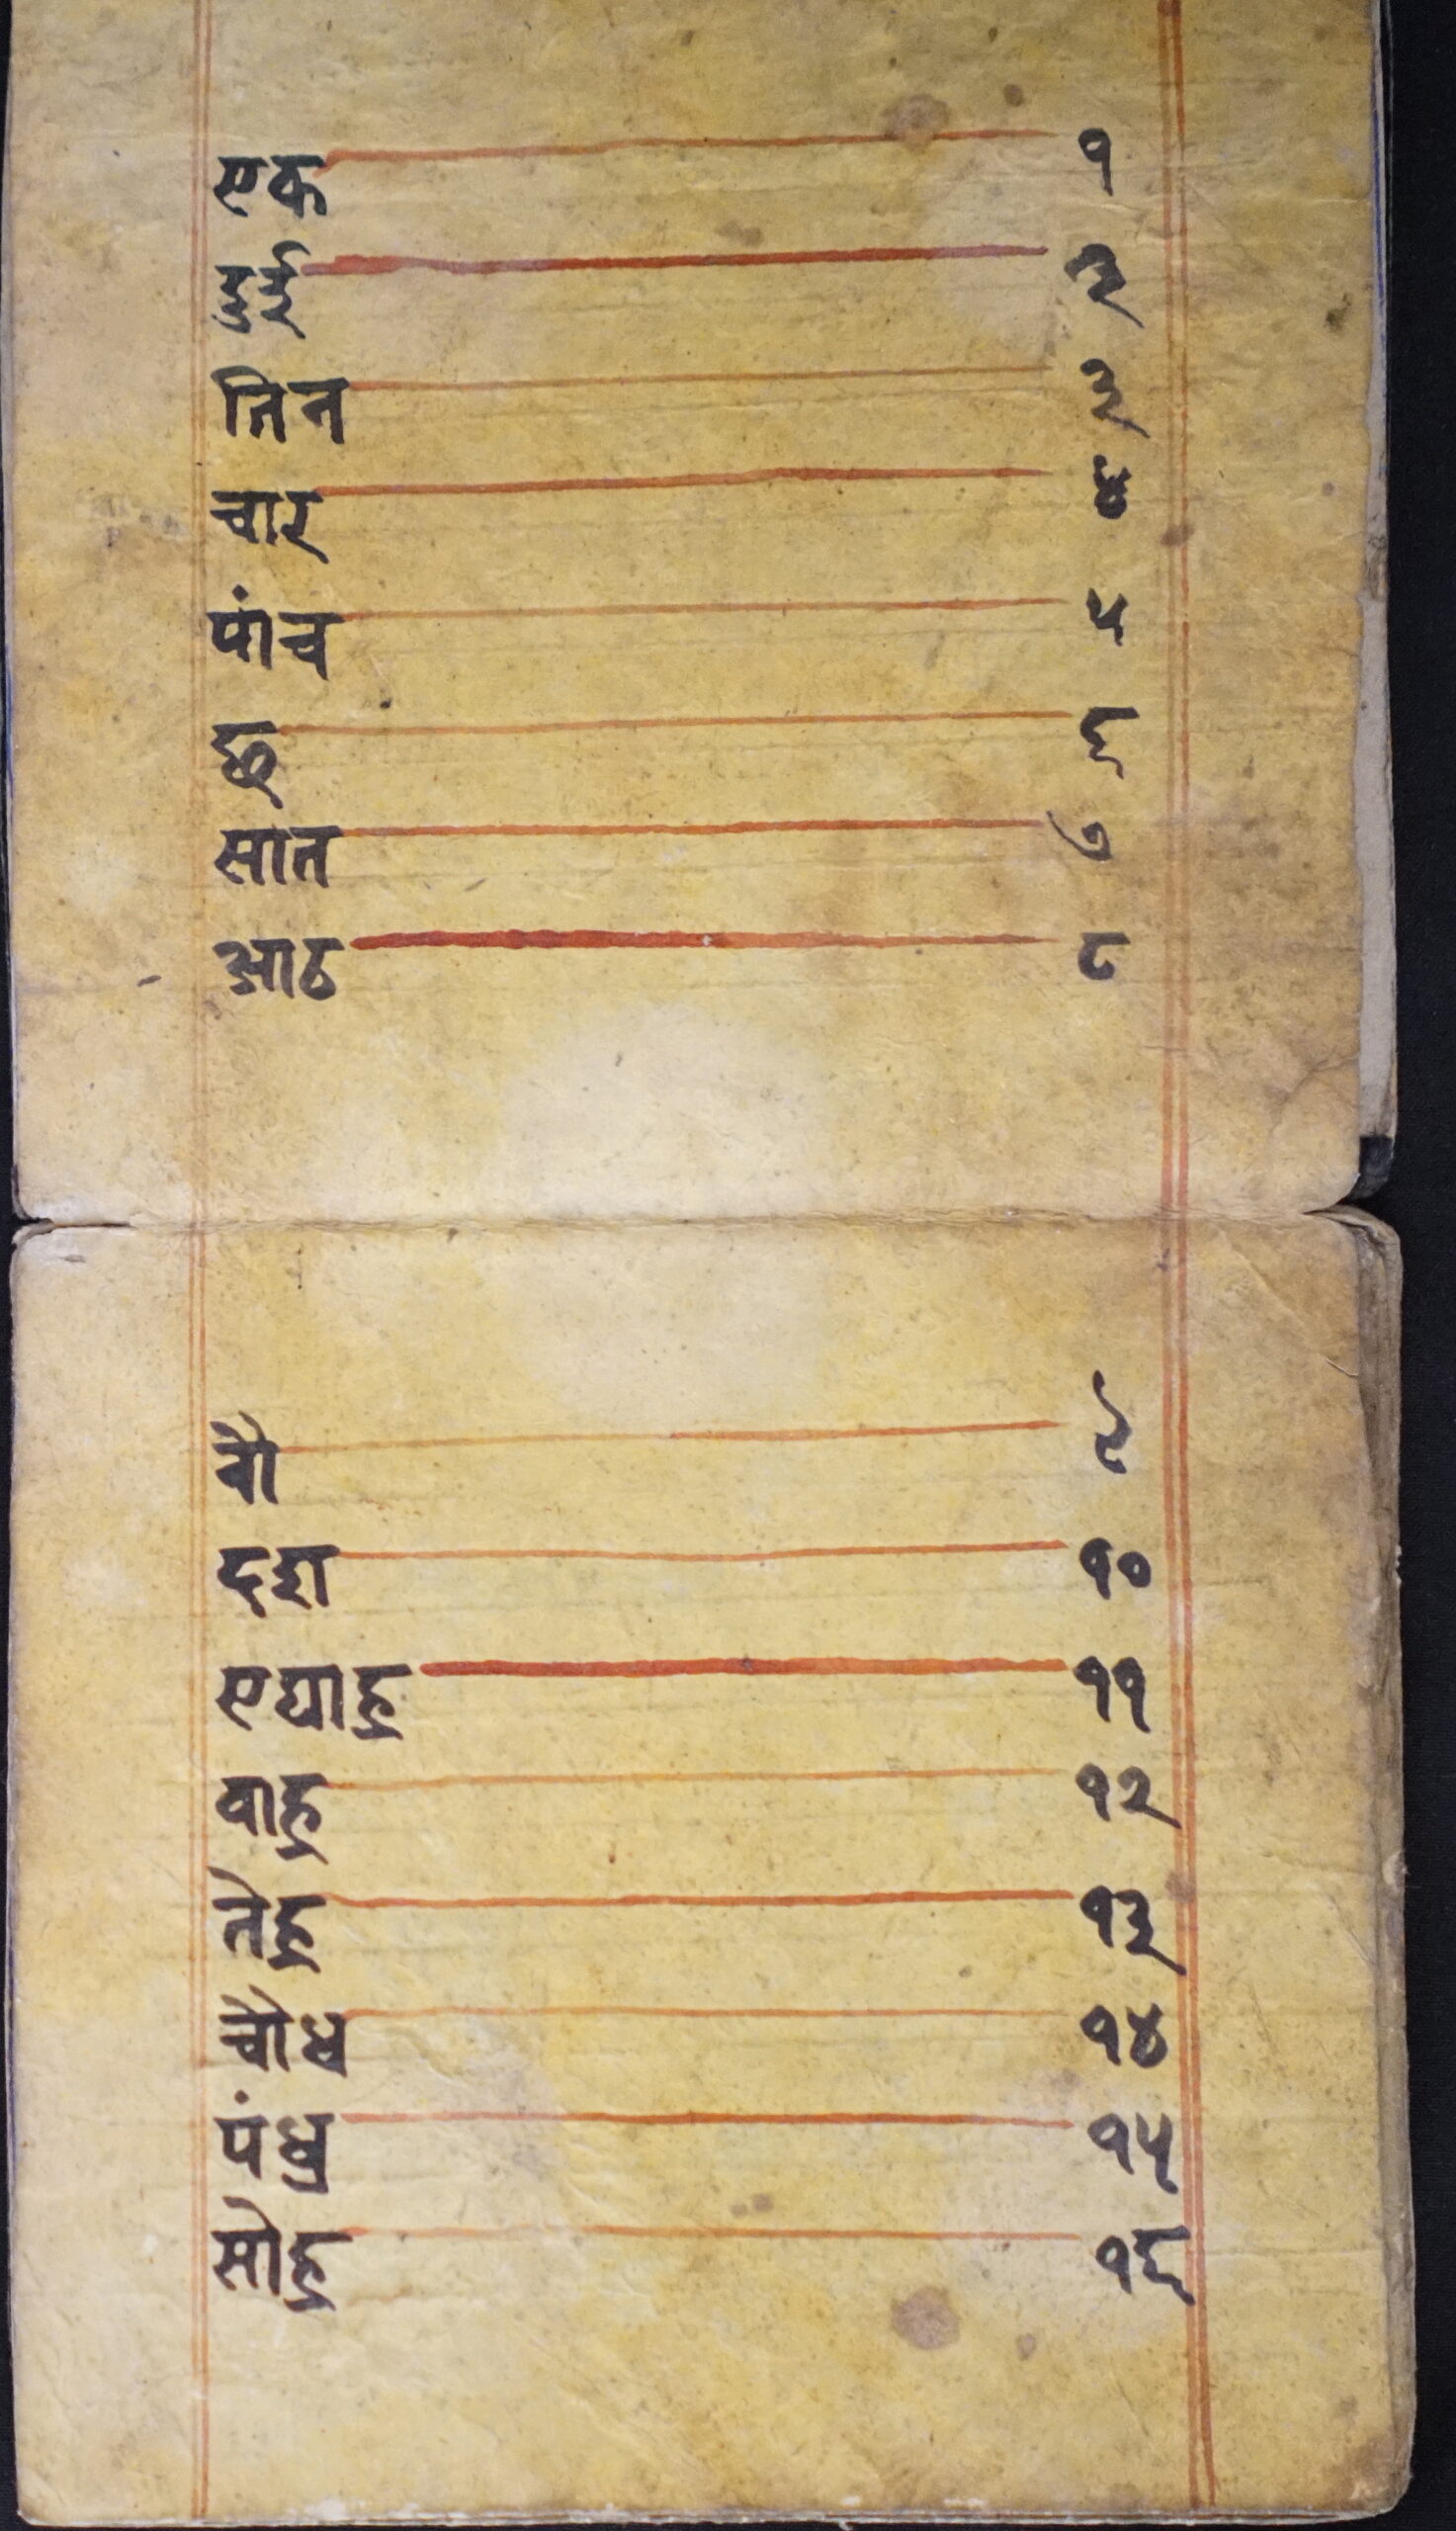 एक १
दुई २
तिन ३
चार ४
पांच ५
छ ६
सात ७
आठ ८
नौ ९
दश १०
एघाह्र ११
वाह्र १२
तेह्र १३
चौध १४
पंध्र १५
सोह्र १६